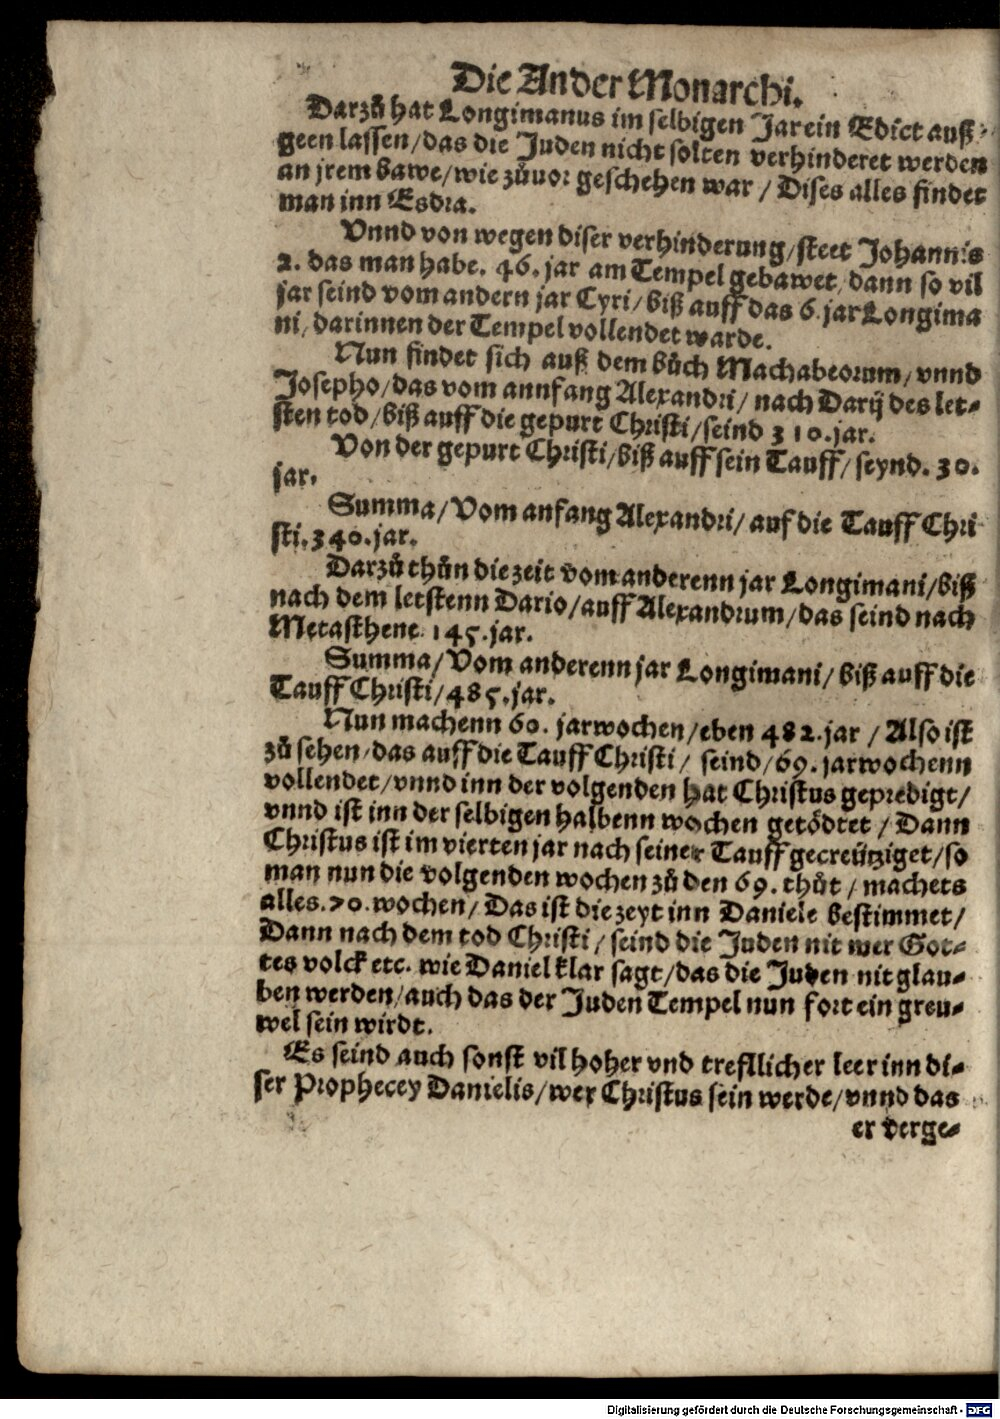 Die Ander Monarchi.
Darzů hat Longimanus im selbigen Jar ein Edict auß-
geen lassen/das die Juden nicht solten verhinderet werden
an jrem bawe/wie zůuor geschehen war / Dises alles findet
man inn Esdra.
Vnnd von wegen diser verhinderung/steet Johannis
2. das man habe. 46. jar am Tempel gebawet/dann so vil
jar seind vom andern jar Cyri/biß auff das 6.jar Longima
ni/darinnen der Tempel vollendet warde.
Nun findet sich auß dem bůch Machabeorum/vnnd
Josepho/das vom annfang Alexandri/nach Darij des let-
sten tod/biß auff die gepurt Christi/seind 310.jar.
Von der gepurt Christi/biß auff sein Tauff/seynd. 30.
jar.
Summa/Vom anfang Alexandri/auf die Tauff Chri
sti.340.jar.
Darzů thůn die zeit vom anderenn jar Longimani/biß
nach dem letstenn Dario/auff Alexandrum/das seind nach
Metasthene 145.jar.
Summa/Vom anderenn jar Longimani/biß auff die
Tauff Christi/485.jar.
Nun machenn 60. jarwochen/eben 482.jar / Also ist
zů sehen/das auff die Tauff Christi/ seind/69. jarwochenn
vollendet/vnnd inn der volgenden hat Christus gepredigt/
vnnd ist inn der selbigen halbenn wochen getödtet / Dann
Christus ist im vierten jar nach seiner Tauff gecreütziget/so
man nun die volgenden wochen zů den 69. thůt / machets
alles.70.wochen/Das ist die zeyt inn Daniele bestimmet/
Dann nach dem tod Christi/seind die Juden nit mer Got-
tes volck etc. wie Daniel klar sagt/das die Juden nit glau-
ben werden/auch das der Juden Tempel nun fort ein greu-
wel sein wirdt.
Es seind auch sonst vil hoher vnd trefllicher leer inn di-
ser Prophecey Danielis/wer Christus sein werde/vnnd das
er verge-
Digitalisierung gefördert durch die Deutsche Forschungsgemeinschaft - DFG